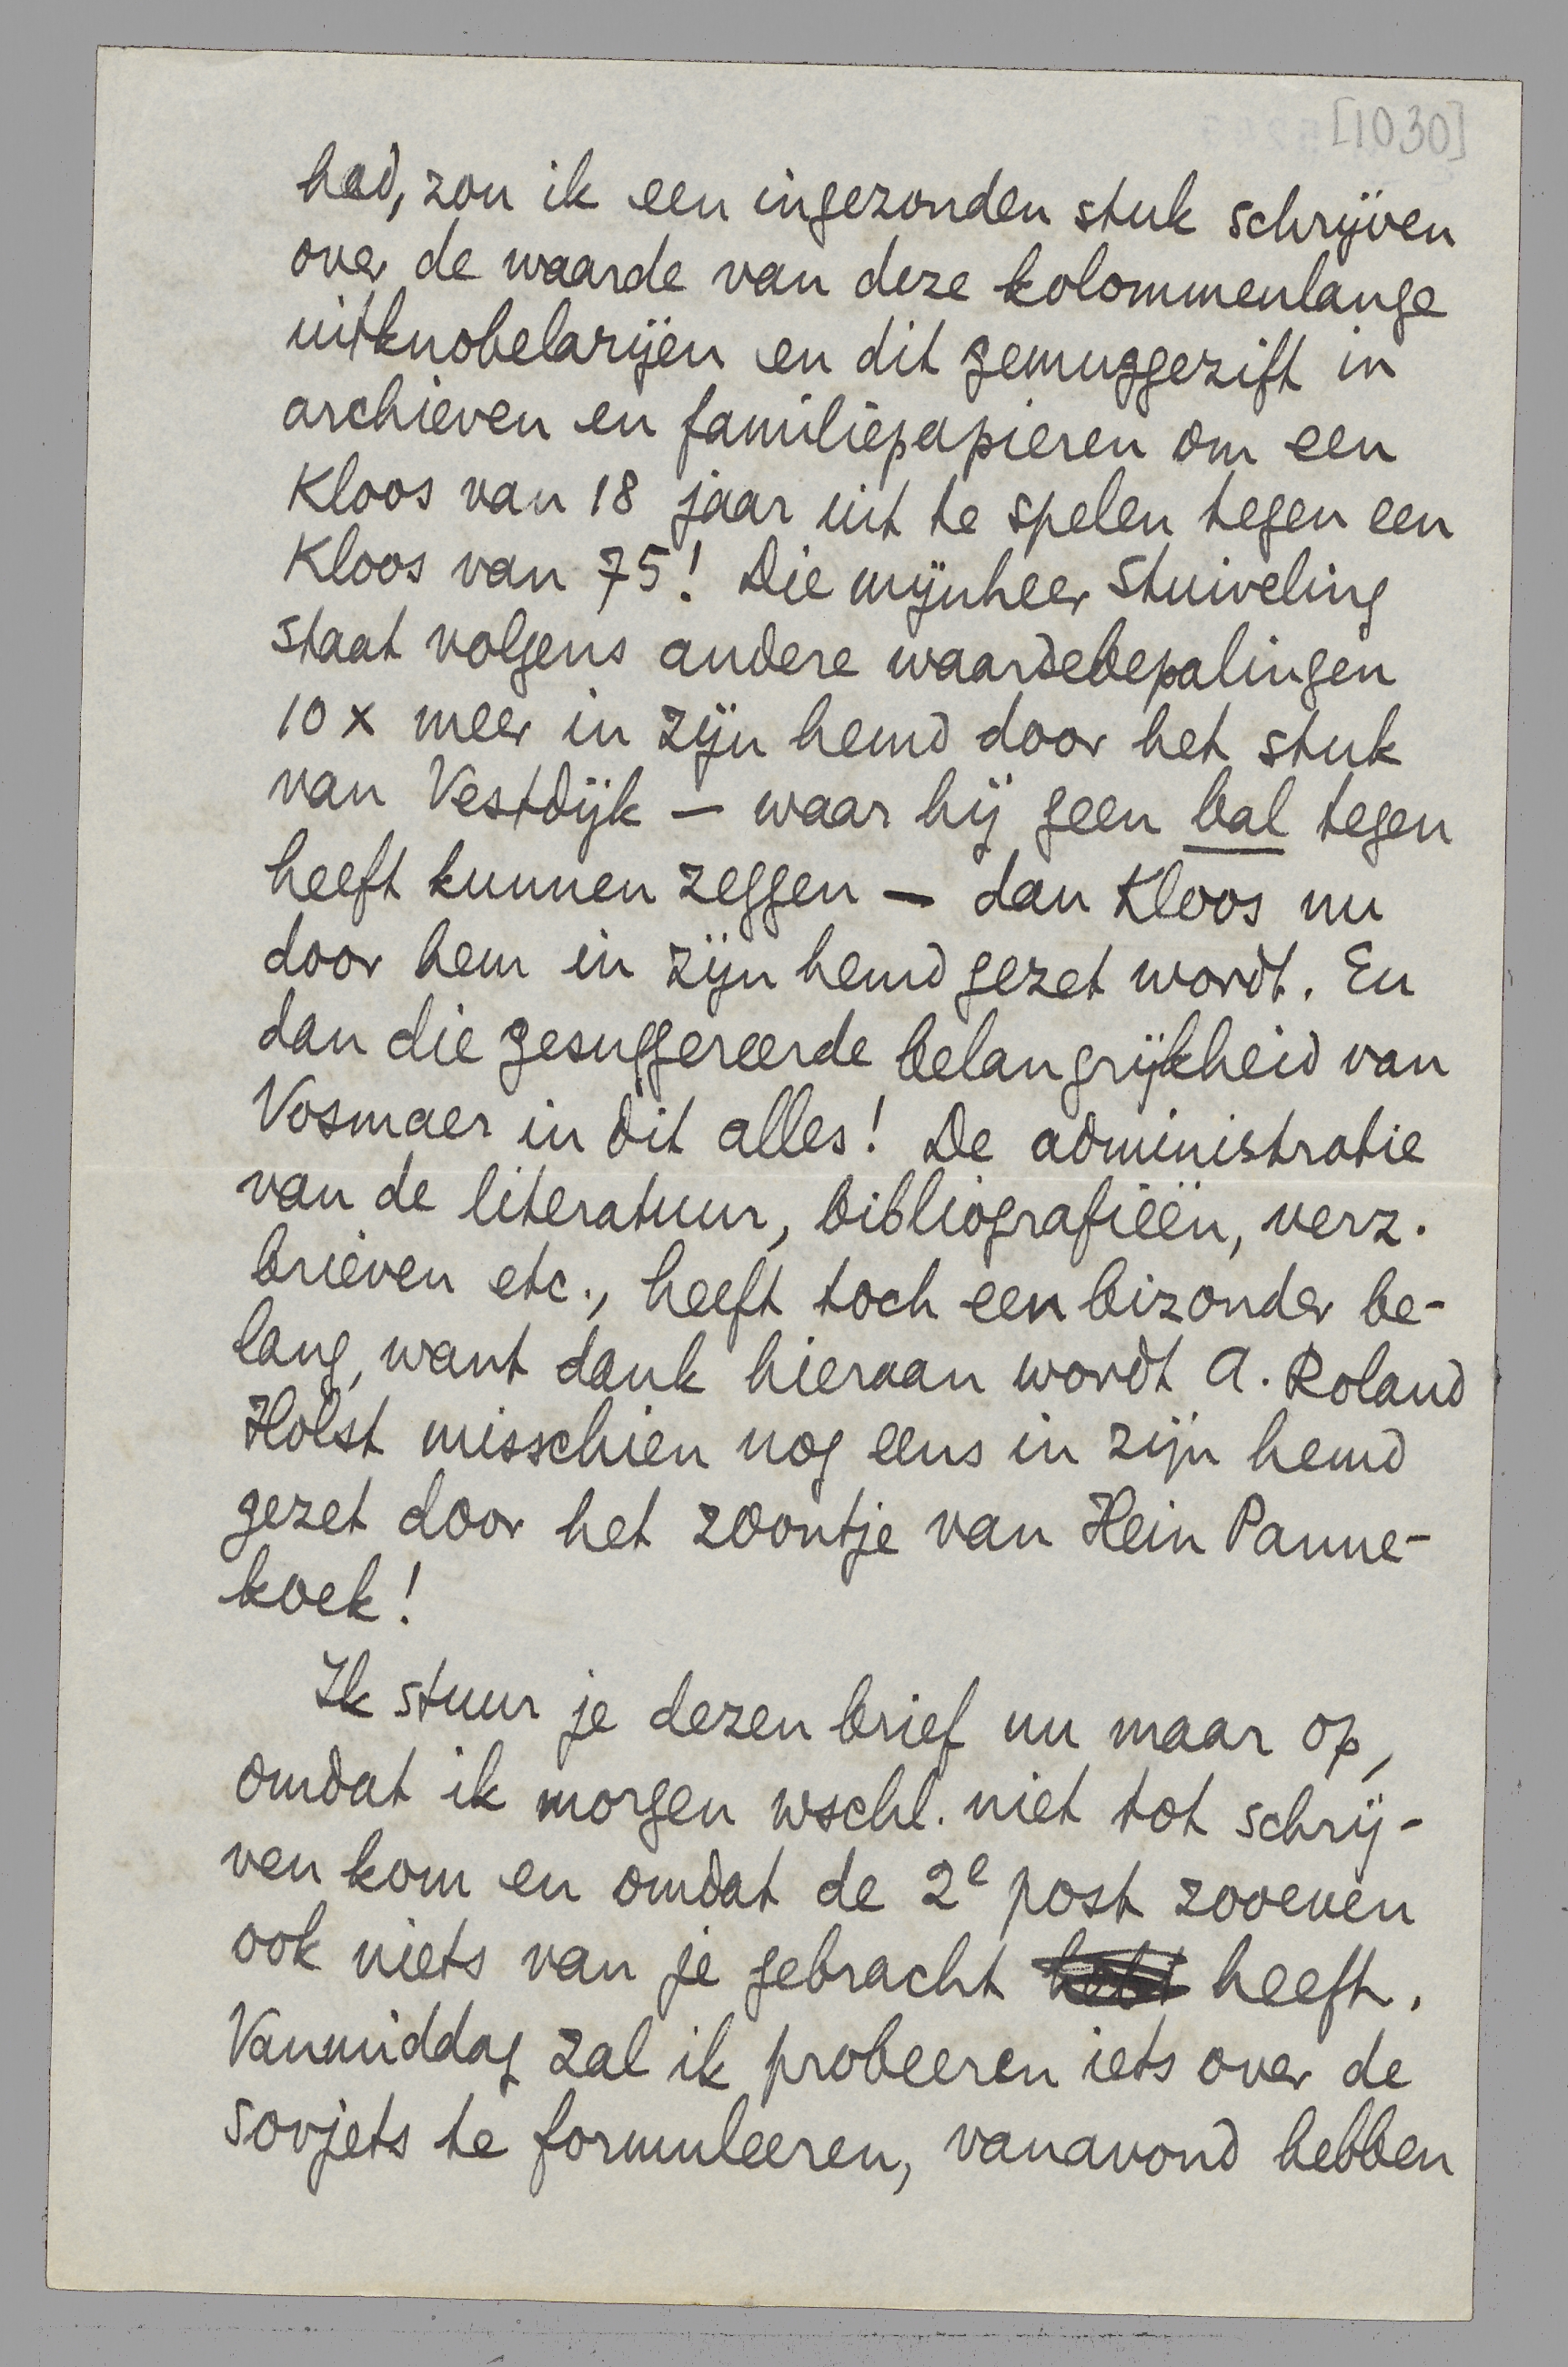 [1030]
had, zou ik een ingezonden stuk schrijven
over de waarde van deze kolommenlange
uitknobelarijen en dit gemuggezift in
archieven en familiepapieren om een
Kloos van 18 jaar uit te spelen tegen een
Kloos van 75! Die mijnheer Stuiveling
staat volgens andere waardebepalingen
10 x meer in zijn hemd door het stuk
van Vestdijk — waar hij geen bal tegen
heeft kunnen zeggen — dan Kloos nu
door hem in zijn hemd gezet wordt. En
dan die gesuggereerde belangrijkheid van
Vosmaer in dit alles! De administratie
van de literatuur, bibliografieën, verz.
brieven etc., heeft toch een bizonder be-
lang, want dank hieraan wordt A. Roland
Holst misschien nog eens in zijn hemd
gezet door het zoontje van Hein Panne-
koek!
Ik stuur je dezen brief nu maar op,
omdat ik morgen wschl. niet tot schrij-
ven kom en omdat de 2e post zooeven
ook niets van je gebracht heeft.
Vanmiddag zal ik probeeren iets over de
Sovjets te formuleeren, vanavond hebben